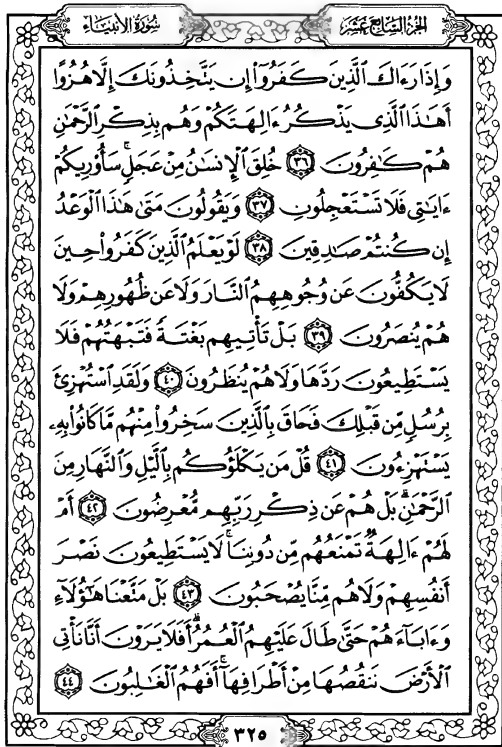 الجزء السابع عشر
سورة الأنبياء
وَإِذَا رَءَاكَ ٱلَّذِينَ كَفَرُوٓاْ إِن يَتَّخِذُونَكَ إِلَّا هُزُوًا
أَهَٰذَا ٱلَّذِى يَذْكُرُ ءَالِهَتَكُمْ وَهُم بِذِكْرِ ٱلرَّحْمَٰنِ
هُمْ كَٰفِرُونَ ٣٦ خُلِقَ ٱلْإِنسَٰنُ مِنْ عَجَلٍۚ سَأُوْرِيكُمْ
ءَايَٰتِى فَلَا تَسْتَعْجِلُونِ ٣٧ وَيَقُولُونَ مَتَىٰ هَٰذَا ٱلْوَعْدُ
إِن كُنتُمْ صَٰدِقِينَ ٣٨ لَوْ يَعْلَمُ ٱلَّذِينَ كَفَرُواْ حِينَ
لَا يَكُفُّونَ عَن وُجُوهِهِمُ ٱلنَّارَ وَلَا عَن ظُهُورِهِمْ وَلَا
هُمْ يُنصَرُونَ ٣٩ بَلْ تَأْتِيهِم بَغْتَةً فَتَبْهَتُهُمْ فَلَا
يَسْتَطِيعُونَ رَدَّهَا وَلَا هُمْ يُنظَرُونَ ٤٠ وَلَقَدِ ٱسْتُهْزِئَ
بِرُسُلٍ مِّن قَبْلِكَ فَحَاقَ بِٱلَّذِينَ سَخِرُواْ مِنْهُم مَّا كَانُواْ بِهِۦ
يَسْتَهْزِءُونَ ٤١ قُلْ مَن يَكْلَؤُكُم بِٱلَّيْلِ وَٱلنَّهَارِ مِنَ
ٱلرَّحْمَٰنِۚ بَلْ هُمْ عَن ذِكْرِ رَبِّهِم مُّعْرِضُونَ ٤٢ أَمْ
لَهُمْ ءَالِهَةٌ تَمْنَعُهُم مِّن دُونِنَاۚ لَا يَسْتَطِيعُونَ نَصْرَ
أَنفُسِهِمْ وَلَا هُم مِّنَّا يُصْحَبُونَ ٤٣ بَلْ مَتَّعْنَا هَٰٓؤُلَآءِ
وَءَابَآءَهُمْ حَتَّىٰ طَالَ عَلَيْهِمُ ٱلْعُمُرُۗ أَفَلَا يَرَوْنَ أَنَّا نَأْتِى
ٱلْأَرْضَ نَنقُصُهَا مِنْ أَطْرَافِهَآۚ أَفَهُمُ ٱلْغَٰلِبُونَ ٤٤
٣٢٥